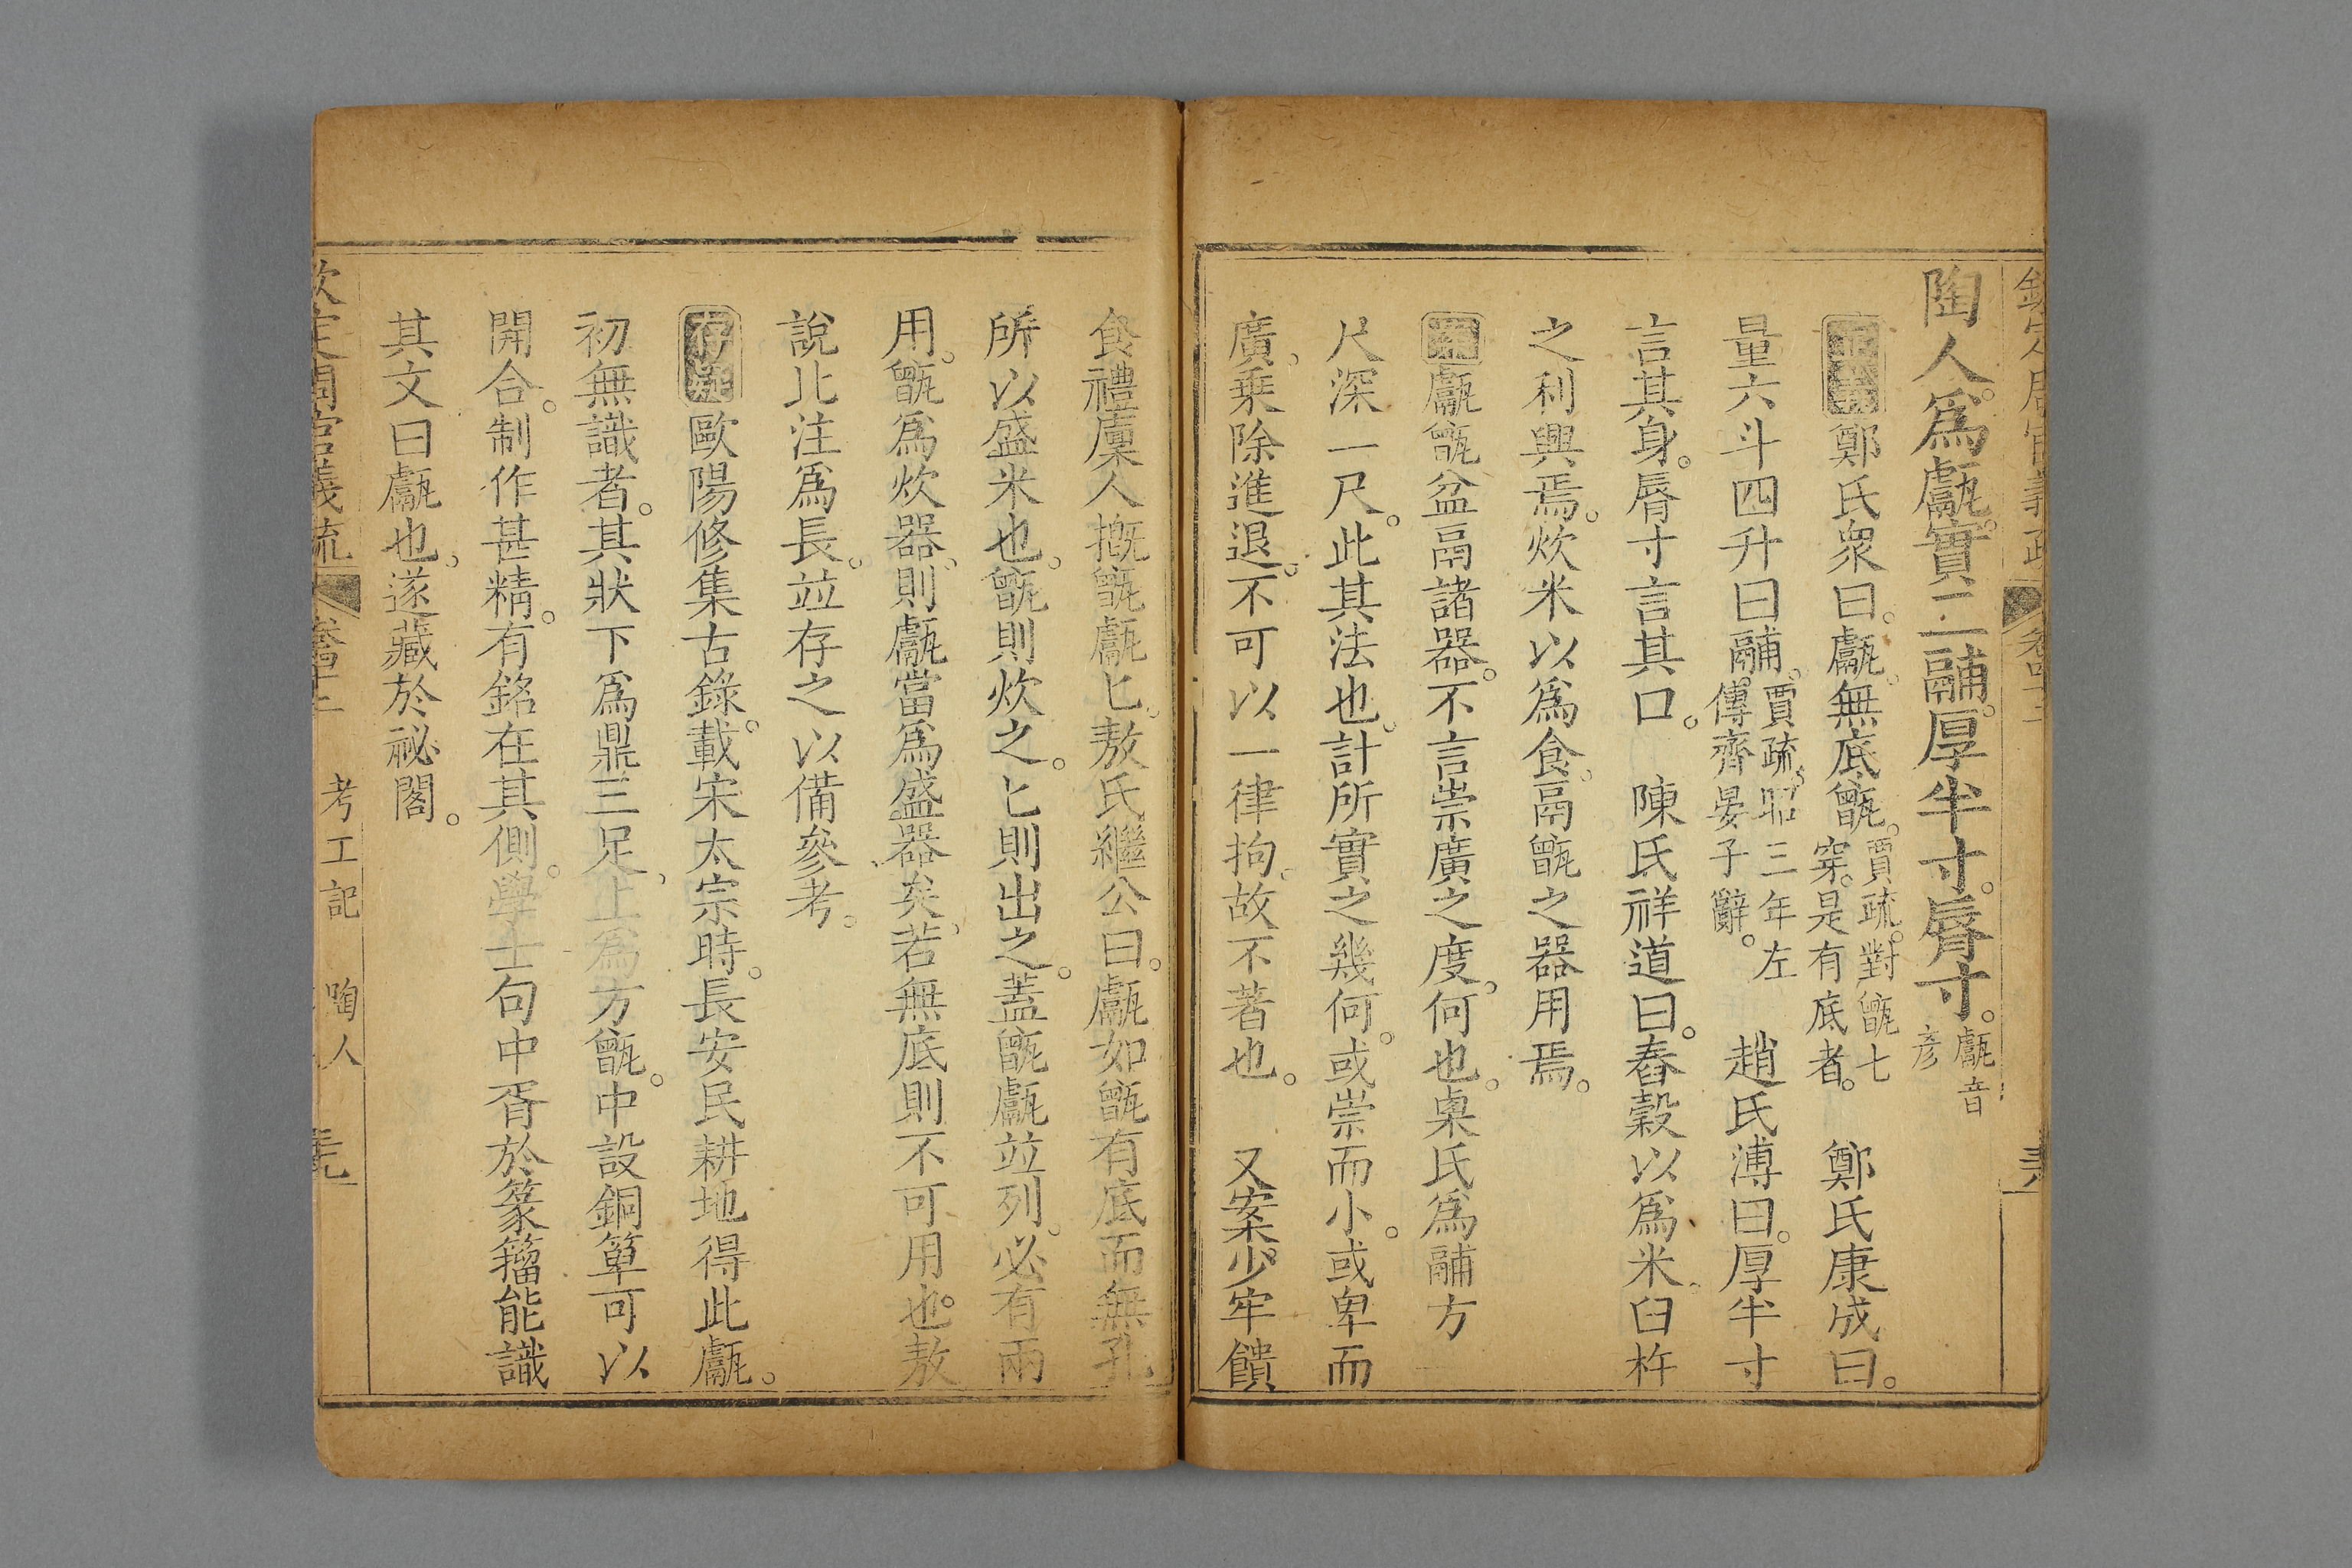 陶人。爲甗。實二鬴。厚半寸。脣寸。甗音彥
正義鄭氏衆曰。甗。無底甑。賈疏。對甑七穿。是有底者。　鄭氏康成曰。
量六斗四升曰鬴。賈疏。昭三年左傳齊晏子辭。　趙氏溥曰。厚半寸
言其身。脣寸言其口。　陳氏祥道曰。舂穀以爲米。臼杵
之利興焉。炊米以爲食。鬲甑之器用焉。
案甗甑盆鬲諸器。不言崇廣之度。何也。㮚氏爲鬴方
尺深一尺。此其法也。計所實之幾何。或崇而小。或卑而
廣。乗除進退。不可以一律拘。故不著也。　又案少牢饋
食禮廩人摡甑甗匕。敖氏繼公曰。甗如甑有底而無孔
所以盛米也。甑則炊之。匕則出之。蓋甑甗並列。必有兩
用。甑爲炊器。則甗當爲盛器矣。若無底則不可用也。敖
說比注爲長。並存之以備參考。
存疑歐陽修集古錄。載宋太宗時。長安民耕地得此甗。
初無識者。其狀下爲鼎三足。上爲方甑。中設銅箄可以
開合。制作甚精。有銘在其側。學士句中胥於篆籀能識
其文曰甗也。遂藏於祕閣。
欽定周官義疏　卷四十三　考工記　陶人